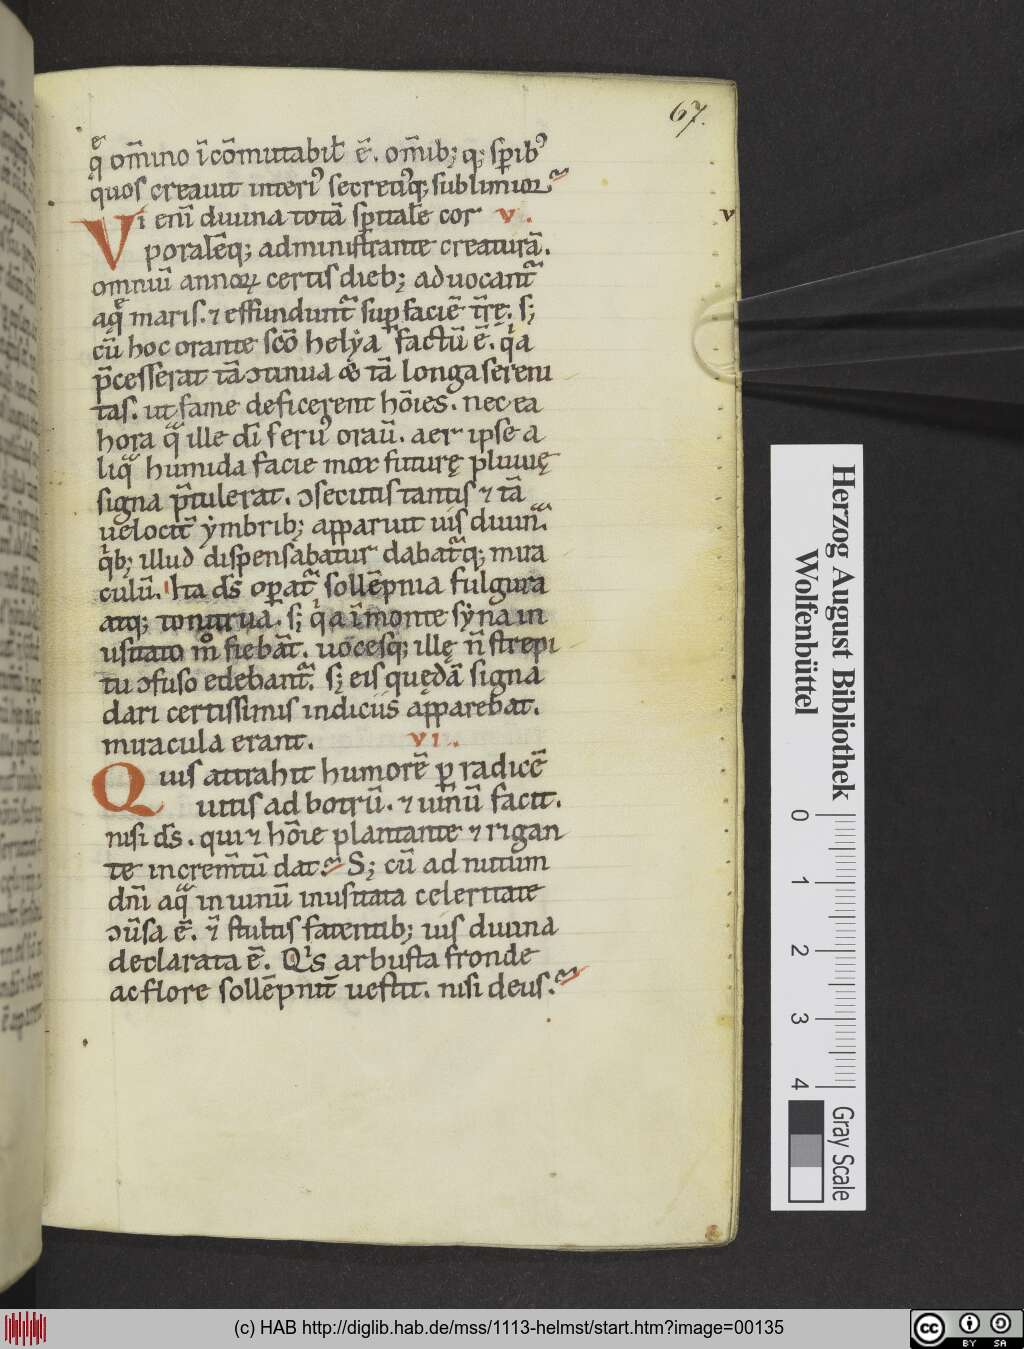 67.
qͤ om̅ino i̅co̅mutabil̅ e̅. om̅ib; q; sp̅ibꝰ
quos creauit interiꝰ secretiꝰq; sublimior᷑
Vi eni̅ diuina tota̅ sp̅itale̅ cor v.
v
porale̅q; administrante creatura̅.
omniu̅ annoꝝ certis dieb; aduocant᷑
aqͤ maris. ⁊ effundunt᷑ suꝑ facie̅ t̅rę. s;
cu̅ hoc orante sco̅ helẏa factu̅ e̅. qͥa
p̅cesserat ta̅ ↄtinua & ta̅ longa sereni
tas. ut fame deficerent ho̅ies. nec ea
hora qᷓ ille di̅ seruꝰ orau̅. aer ipse a
liqᷓ humida facie mox futurę pluuię
signa p̅tulerat. ↄsecutis tantis ⁊ ta̅
uelocit̅ ẏmbrib; apparuit uis diuinᷓ.
qͥb; illud dispensabatur dabat᷑q; mira
culu̅. Ita ds̅ oꝑat᷑ solle̅pnia fulgura
atq; tonitrua. s; qͥa i̅ monte sẏna in
usitato mͦ fieba̅t. uocesq; illę n̅ strepi
tu ↄfuso edebant᷑. s; eis quęda̅ signa
dari certissimis indiciis apparebat.
miracula erant. vi.
Quis attrahit humore̅ ꝑ radice̅
uitis ad botru̅. ⁊ uinu̅ facit.
nisi ds̅. qui ⁊ ho̅ie plantante ⁊ rigan
te increm̅tu̅ dat. S; cu̅ ad nutum
dn̅i aqᷓ in uinu̅ inusitata celeritate
ↄu̅sa e̅. ⁊̅ stultis fatentib; uis diuina
declarata e̅. Qͥs arbusta fronde
ac flore solle̅pnit̅ uestit. nisi deus.
Herzog August Bibliothek
Wolfenbüttel
0 1 2 3 4
Gray Scale
(c) HAB http://diglib.hab.de/mss/1113-helmst/start.htm?image=00135
cc BY SA